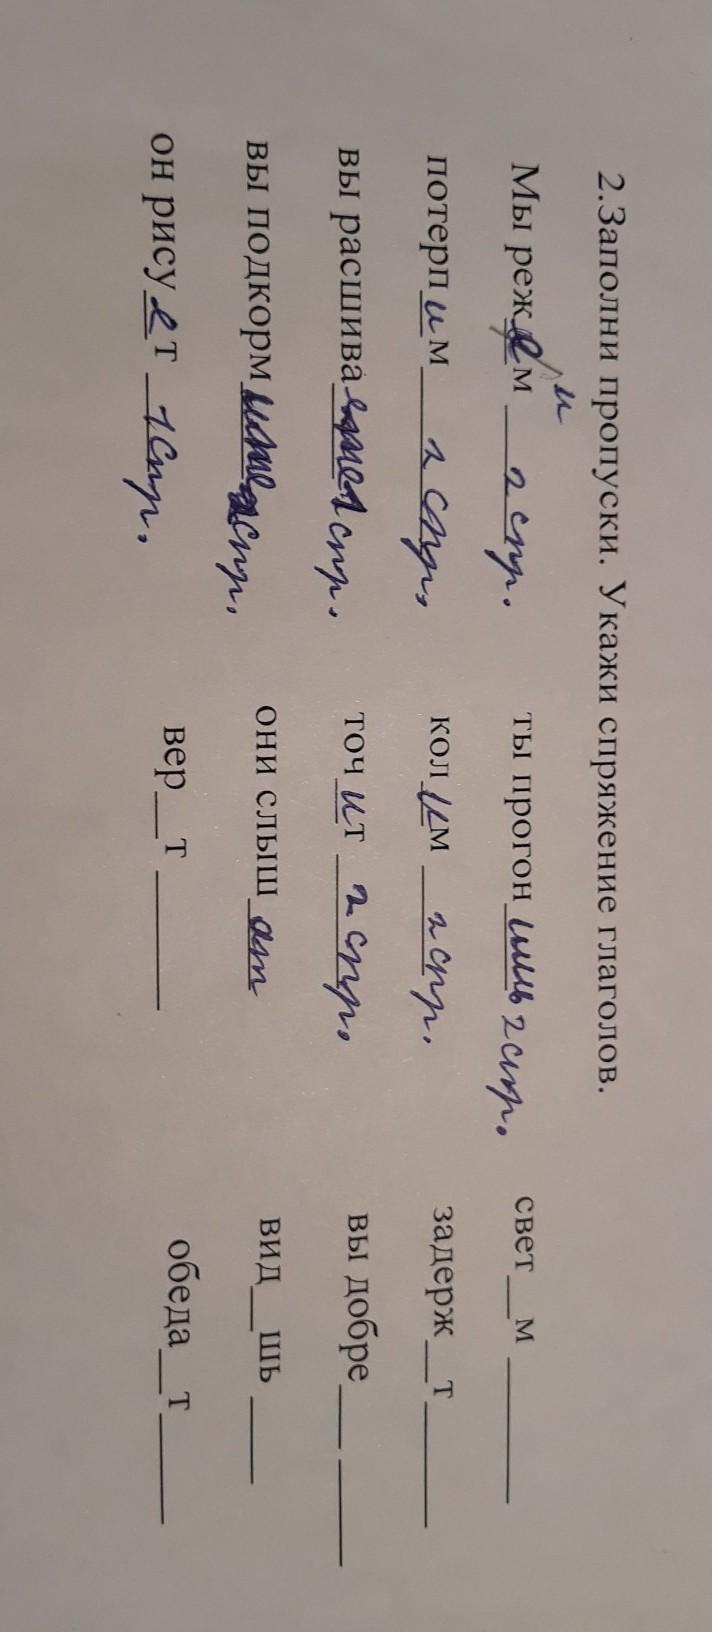 2.Заполни пропуски. Укажи спряжение глаголов.
Мы режем и 2 спр. ты прогонишь 2 спр. свет__м ______
потерпим 2 спр. колим 2 спр. задерж__т ______
вы расшиваете 1 спр. точит 2 спр. вы добре___ ______
вы подкормите 2 спр. они слышат вид__шь ______
он рисует 1 спр. вер__т ______ обеда__т ______